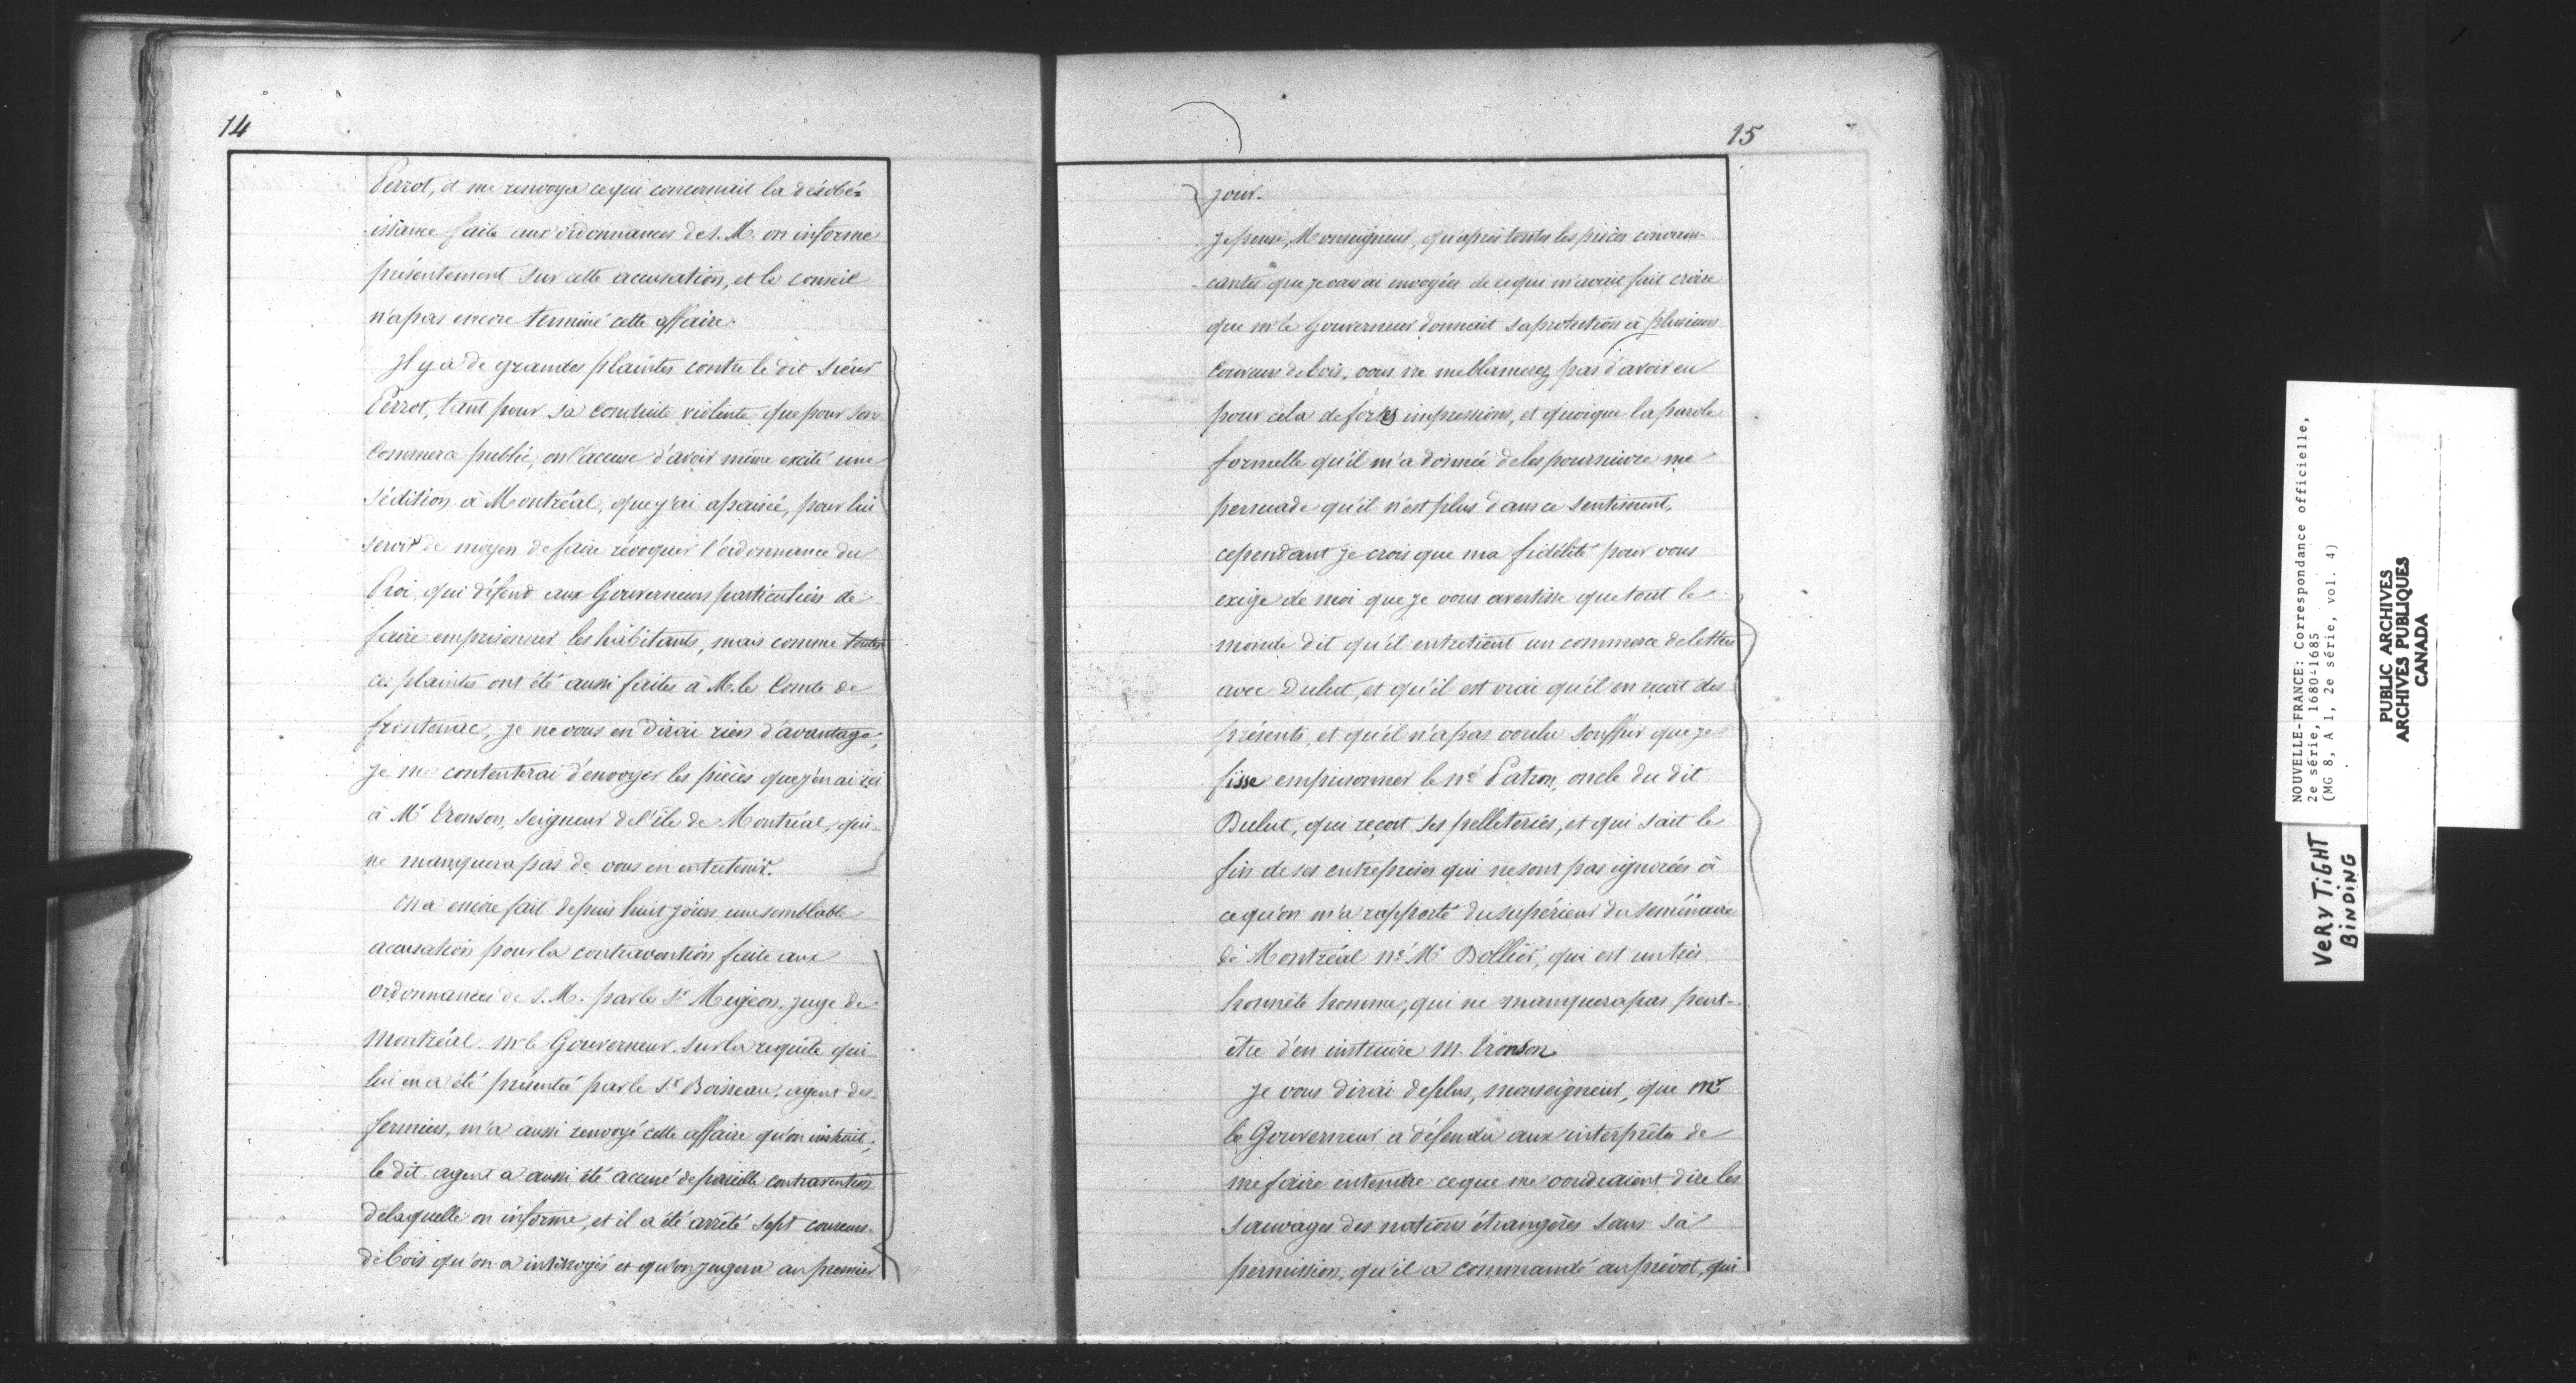 14
Perrot, et me renvoya ce qui concernait la désobé=
issance faite aux ordonnances de S. M. on informe
présentement sur cette accusation, et le conseil
n'a pas encore terminé cette affaire.
Il y a de grandes plaintes contre le dit Sieur
Perrot, tant pour sa conduite violente que pour son
Commerce public, on l'accuse d'avoir même excité une
sédition à Montréal, que j'ai apaisée, pour lui
servir de moyen de faire révoquer l'ordonnance du
Roi, qui défend aux Gouverneurs particuliers de
faire emprisonner les habitants, mais comme toutes
ces plaintes ont été aussi faites à M. le Comte de
frontenac, je ne vous en dirai rien d'avantage,
Je me contenterai d'envoyer les pièces que j'en ai ici
à Mr Tronson, Seigneur de l'île de Montréal, qui
ne manquera pas de vous en entretenir.
On a encore fait depuis huit jours une semblable
accusation pour la contravention faite aux
ordonnances de S. M. par le Sr Migeon, juge de
Montréal. Mr le Gouverneur sur la requête qui
lui en a été présentée par le Sr Boisseau, agent des
fermiers, m'a aussi renvoyé cette affaire qu'on instruit,
le dit agent a aussi été accusé de pareille contravention
de laquelle on informe, et il a été arrêté sept coureurs
de bois qu'on a interrogés et qu'on jugera au premier
15
jour.
Je pense, Monseigneur, qu'après toutes les pièces convain-
cantes que je vous ai envoyées de ce qui m'avait fait croire
que mr le Gouverneur donnait sa protection à plusieurs
Coureurs de bois, vous ne me blamerez pas d'avoir eu
pour cela de fortes impressions, et quoique la parole
formelle qu'il m'a donnée de les poursuivre me
persuade qu'il n'est plus dans ce sentiment,
cependant je crois que ma fidélité pour vous
exige de moi que je vous avertisse que tout le
monde dit qu'il entretient un commerce de lettres
avec Dulut, et qu'il est vrai qu'il en reçoit des
présents, et qu'il n'a pas voulu souffrir que je
fisse emprisonner le né Patron, oncle du dit
Dulut, qui reçoit ses pelleteries, et qui sait le
fin de ses entreprises qui ne sont pas ignorées à
ce qu'on m'a rapporté du supérieur du séminaire
de Montréal né Mr Dollier, qui est un très
honnête homme, qui ne manquera pas peut-
être d'en instruire M. Tronson
Je vous dirai de plus, monseigneur, que Mr
le Gouverneur a défendu aux interprètes de
me faire entendre ce que me voudraient dire les
Sauvages des nations étrangères sans sa
permission, qu'il a commandé au prévôt, qui
NOUVELLE-FRANCE: Correspondance officielle,
2e série, 1680-1685
(MG 8, A 1, 2e série, vol. 4)
PUBLIC ARCHIVES
ARCHIVES PUBLIQUES
CANADA
VERY TiGHT
BiNDiNG